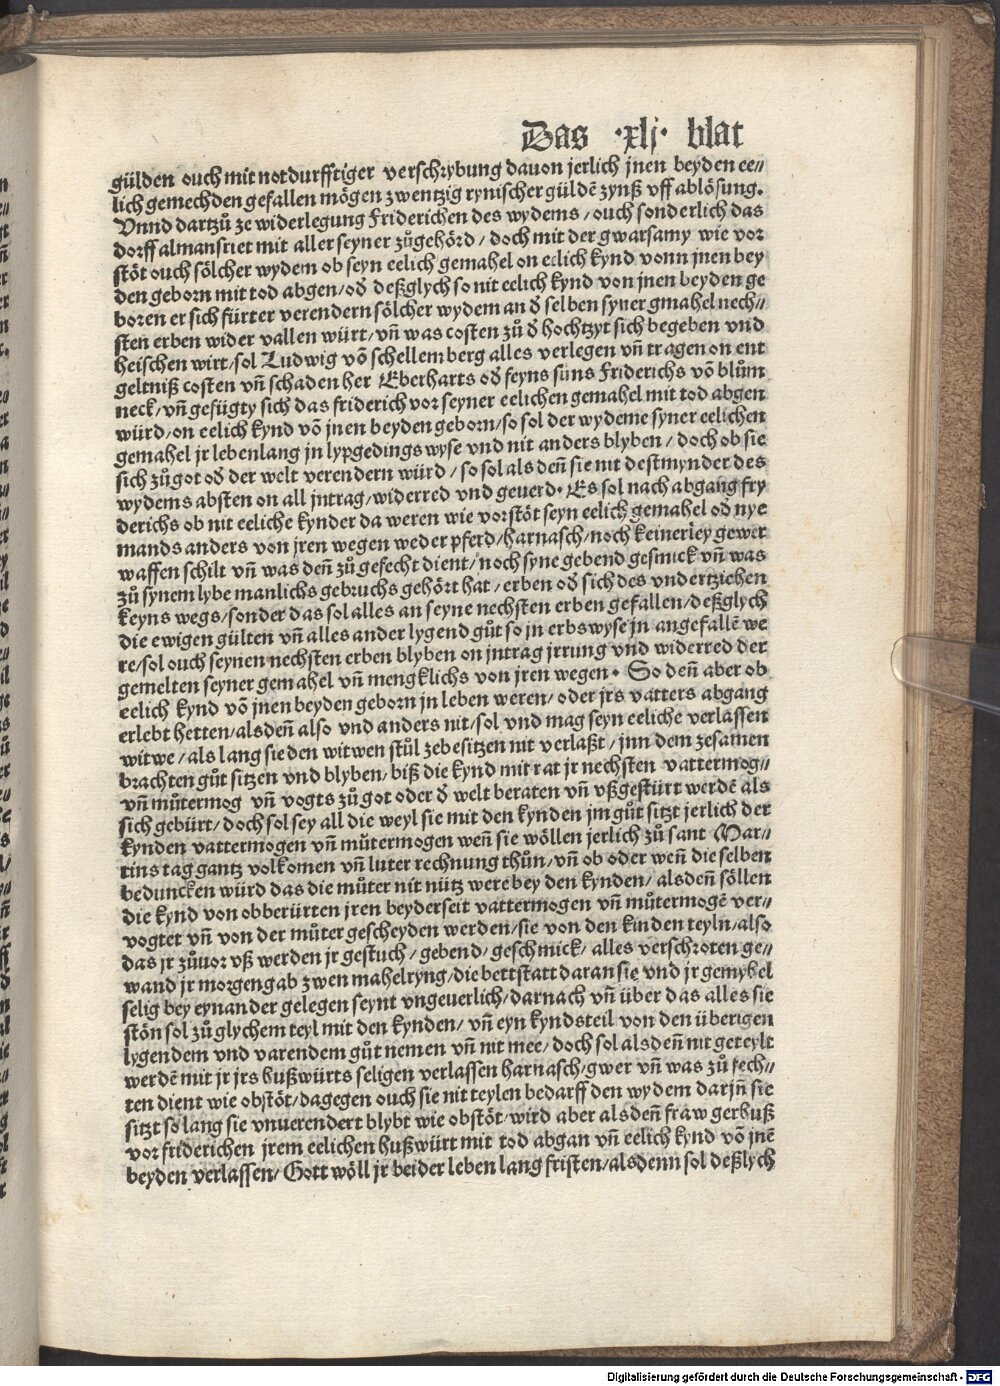 Das ·xlj· blat
gülden ouch mit notdurfftiger verschrybung dauon jerlich jnen beyden ee//
lich gemechden gefallen mögen zwentzig rynischer güldē zynß vff ablösung.
Vnnd dartzů ze widerlegung Friderichen des wydems / ouch sonderlich das
dorff almansriet mit aller seyner zůgehörd / doch mit der gwarsamy wie vor
stöt ouch sölcher wydem ob seyn eelich gemahel on eelich kynd vonn jnen bey
den geborn mit tod abgen / oď deßglych so nit eelich kynd von jnen beyden ge
boren er sich fürter verendern sölcher wydem an ď selben syner gmahel nech//
sten erben wider vallen würt / vñ was costen zů ď hochtzyt sich begeben vnd
heischen wirt / sol Ludwig vō schellemberg alles verlegen vñ tragen on ent
geltniß costen vñ schaden her Eberharts oď seyns suns Friderichs vō blům
neck / vñ gefügty sich das friderich vor seyner eelichen gemahel mit tod abgen
würd / on eelich kynd vō jnen beyden geborn / so sol der wydeme syner eelichen
gemahel jr lebenlang jn lypgedings wyse vnd nit anders blyben / doch ob sie
sich zů got oď der welt verendern würd / so sol als deñ sie nit destmynder des
wydems absten on all jntrag / widerred vnd geuerd. Es sol nach abgang fry
derichs ob nit eeliche kynder da weren wie vorstöt seyn eelich gemahel oď nye
mands anders von jren wegen weder pferd / harnasch / noch keinerley gewer
waffen schilt vñ was deñ zů gefecht dient / noch syne gebend gesmuck vñ was
zů synem lybe manlichs gebruchs gehört hat / erben oď sich des vndertziehen
keyns wegs / sonder das sol alles an seyne nechsten erben gefallen / deßglych
die ewigen gülten vñ alles ander lygend gůt so jn erbswyse jn angefallē we
re / sol ouch seynen nechsten erben blyben on jntrag jrrung vnd widerred der
gemelten seyner gemahel vñ mengklichs von jren wegen. So deñ aber ob
eelich kynd vō jnen beyden geborn jn leben weren / oder jrs vatters abgang
erlebt hetten / alsdeñ also vnd anders nit / sol vnd mag seyn eeliche verlassen
witwe / als lang sie den witwen stůl ze besitzen nit verlaßt / jnn dem zesamen
brachten gůt sitzen vnd blyben / biß die kynd mit rat jr nechsten vattermog//
vñ můtermog vñ vogts zů got oder ď welt beraten vñ vßgestürt werdē als
sich gebürt / doch sol sey all die weyl sie mit den kynden jm gůt sitzt jerlich der
kynden vattermogen vñ můtermogen weñ sie wöllen jerlich zů sant Mar//
tins tag gantz volkomen vñ luter rechnung thůn / vñ ob oder weñ die selben
beduncken würd das die můter nit nütz were bey den kynden / alsdeñ söllen
die kynd von obberürten jren beyderseit vattermogen vñ můtermogē ver//
vogtet vñ von der můter gescheyden werden / sie von den kinden teyln / also
das jr zůuor vß werden jr gestuch / gebend / geschmick / alles verschroten ge//
wand jr morgengab zwen mahelryng / die bettstatt daran sie vnd jr gemybel
selig bey eynander gelegen seynt vngeuerlich / darnach vñ über das alles sie
stön sol zů glychem teyl mit den kynden / vñ eyn kyndsteil von den überigen
lygendem vnd varendem gůt nemen vñ nit mee / doch sol alsdeñ nit geteylt
werdē mit jr jrs hußwürts seligen verlassen harnasch / gwer vñ was zů fech//
ten dient wie obstöt / dagegen ouch sie nit teylen bedarff den wydem darjñ sie
sitzt so lang sie vnuerendert blybt wie obstöt / wird aber alsdeñ fraw gerhuß
vor friderichen jrem eelichen hußwürt mit tod abgan vñ eelich kynd vō jnē
beyden verlassen / Gott wöll jr beider leben lang fristen / alsdenn sol deßlych
Digitalisierung gefördert durch die Deutsche Forschungsgemeinschaft - DFG